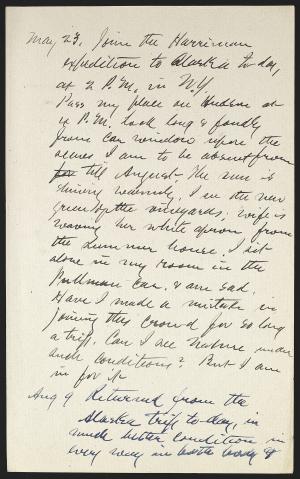 May 23, Join the Harriman
expedition to Alaska to-day,
at 2 P.M. in N.Y.
Pass my place on Hudson at
4 P.M. look long & fondly
from car window upon the
scenes I am to be absent from
till August. The sun is
shining warmly, I see the new
green of the vineyards; wife is
waving her white apron from
the summer house. I sit
alone in my room in the
Pullman car & am sad.
Have I made a mistake in
joining this crowd for so long
a trip. Can I see nature under
such conditions? But I am
in for it
Aug 9 Returned from the
Alaska trip to-day, in
much better condition in
every way in both body &